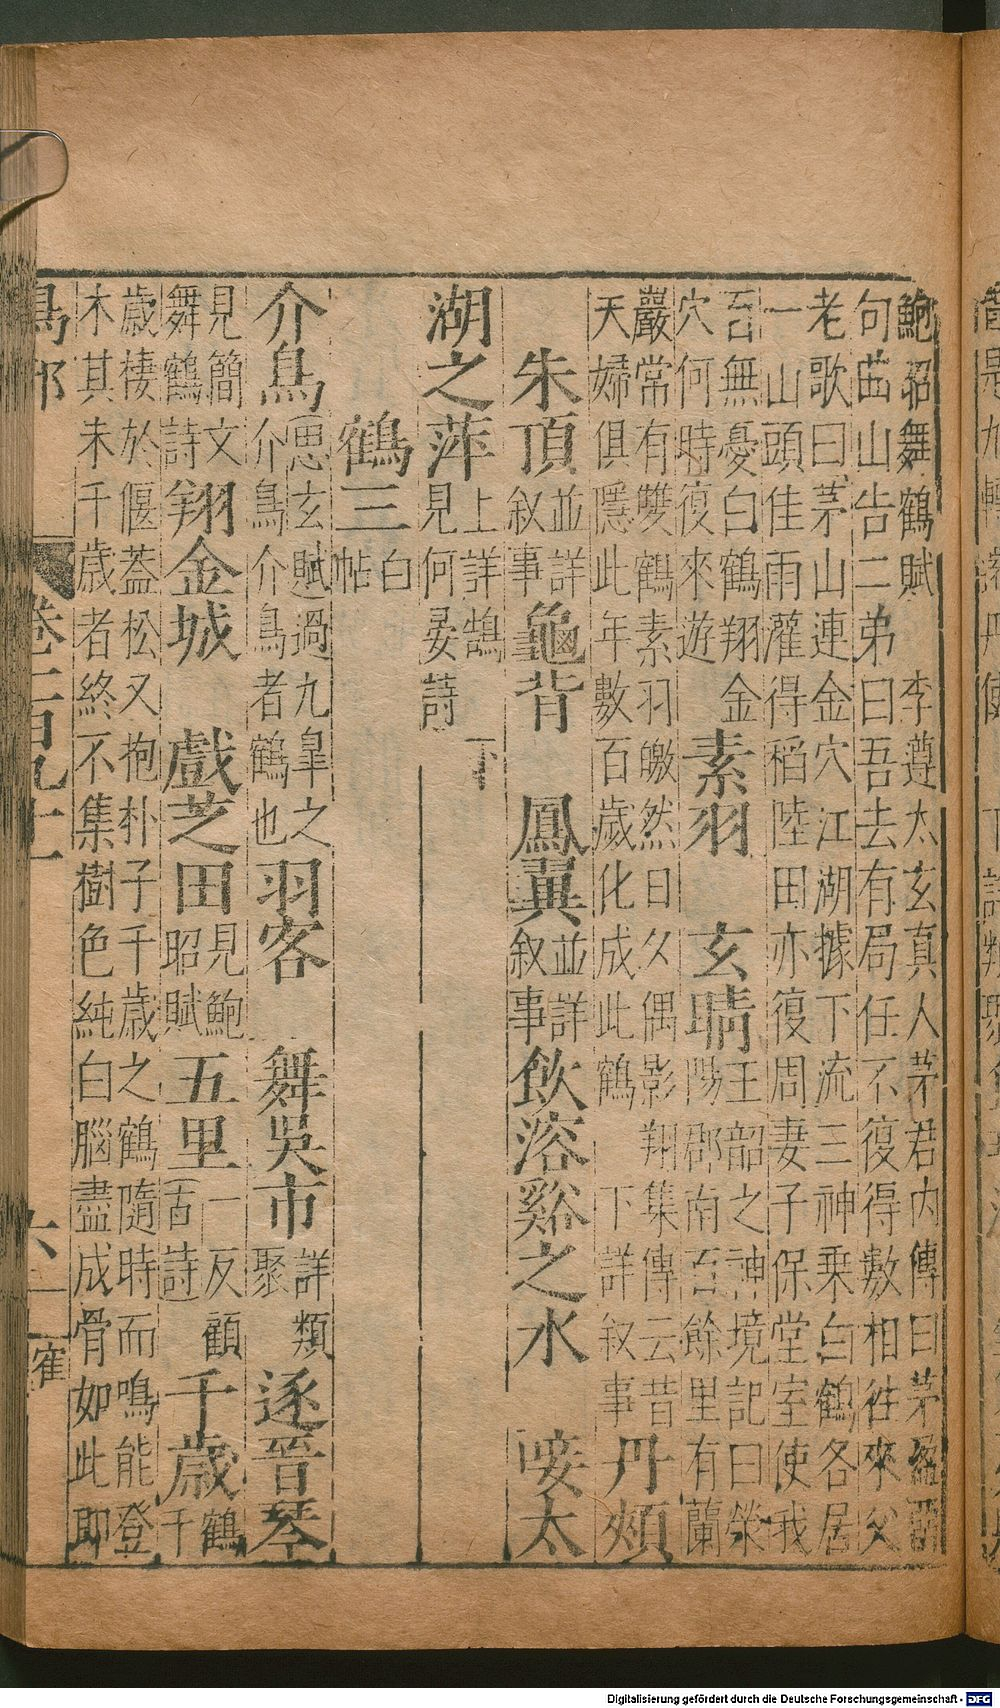 鮑昭舞鶴賦　李遵太玄真人茅君內傳曰茅盈留
句曲山告二弟曰吾去有局任不復得數相徃來父
老歌曰茅山連金穴江湖據下流三神乗白鶴各居
一山頭佳雨灌得稻陸田亦復周妻子保堂室使我
百無憂白鶴翔金
穴何時復來遊
素羽　玄晴
王韶之神境記曰滎
陽郡南百餘里有蘭
巖常有雙鶴素羽皦然日久偶影翔集傳云昔
天婦俱隱此年數百歲化成此鶴　下詳叙事
丹頰
朱頂並詳叙事龜背　鳳翼並詳叙事飲溶谿之水　唼太
湖之萍上詳鵠下見何晏詩
鶴三白帖
介鳥思玄賦過九臯之介鳥介鳥者鶴也羽客　舞吳市詳類聚逐晉琴
見簡文舞鶴詩翔金城　戲芝田見鮑昭賦五里古詩一反顧千歲鶴千
歲棲於偃葢松又抱朴子千歲之鶴隨時而鳴能登
木其未千歲者終不集樹色純白腦盡成骨如此即
鳥部　卷二百九十一　六　寉
Digitalisierung gefördert durch die Deutsche Forschungsgemeinschaft - DFG